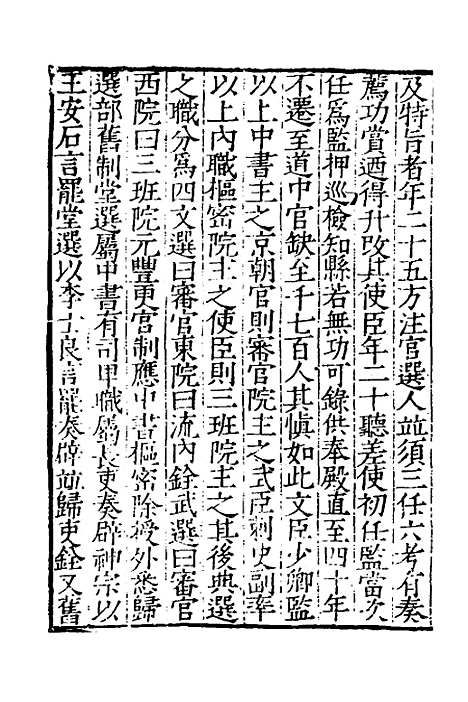 及特旨者年二十五方注官選人並須三任六考有奏
薦功賞迺得升改其使臣年二十聽差使初任監當次
任爲監押巡檢知縣若無功可錄供奉殿直至四十年
不遷至道中官缺至千七百人其慎如此文臣少卿監
以上中書主之京朝官則審官院主之武臣刺史副率
以上內職樞密院主之使臣則三班院主之其後典選
之職分爲四文選曰審官東院曰流內銓武選曰審官
西院曰三班院元豐更官制應中書樞密除授外悉歸
選部舊制堂選屬中書有司甲職屬長吏奏辟神宗以
王安石言罷堂選以李士良言罷奏辟並歸吏銓又舊